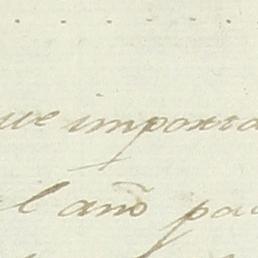 que importa
el año pa